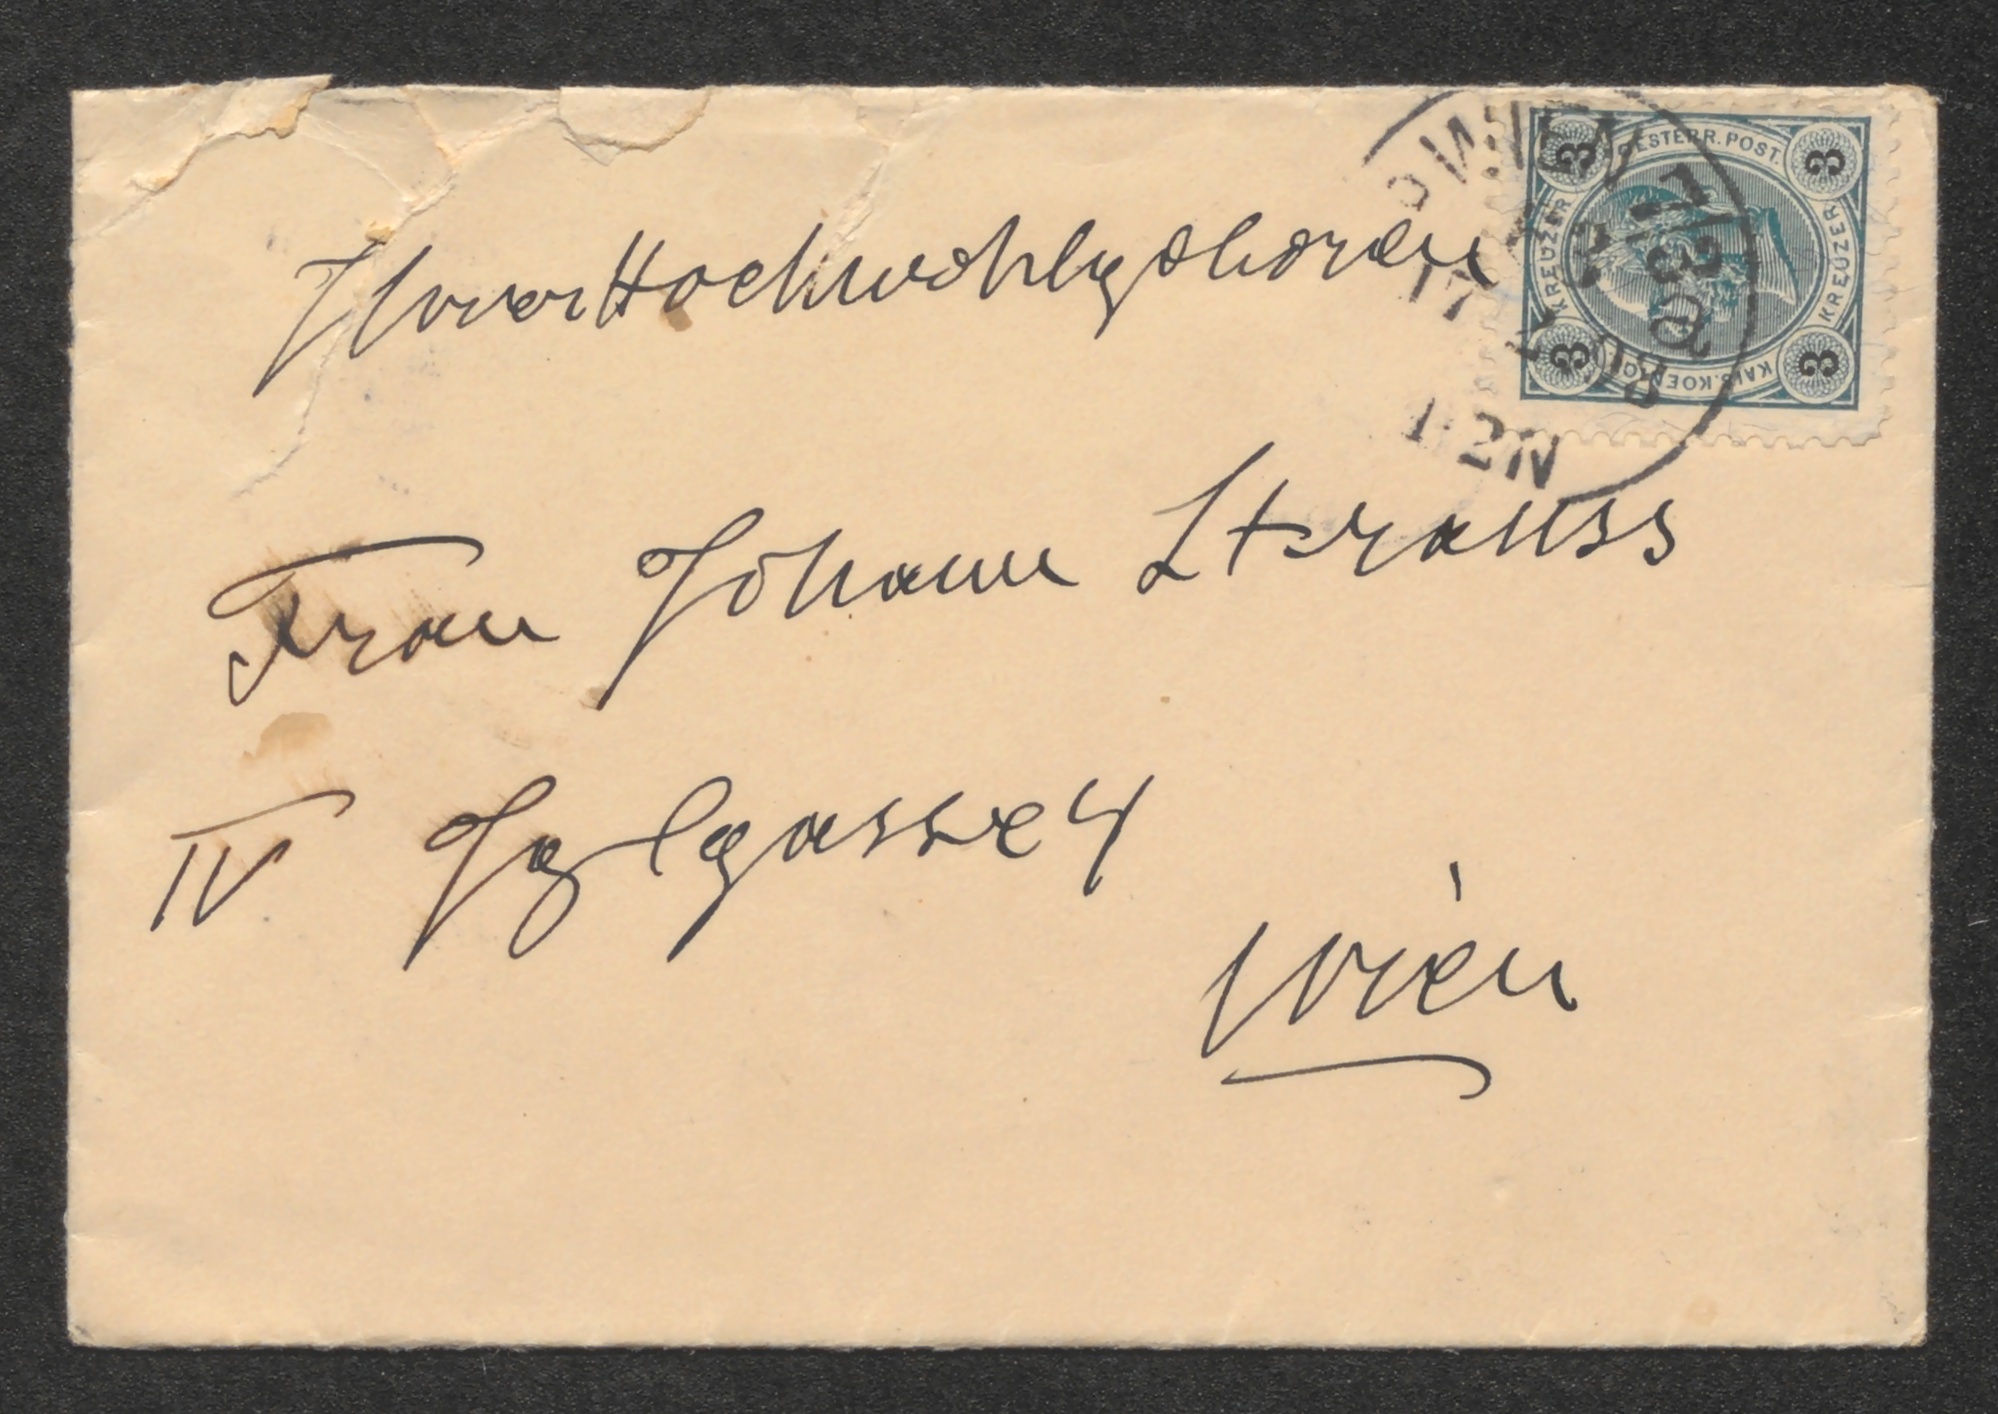 Ihrer Hochwohlgeboren
Frau Johann Strauss
IV Igelgasse 4
Wien
OESTERR. POST.
KREUZER
KREUZER
KAIS. KOEN
3
3
3
3
WIEN
12N